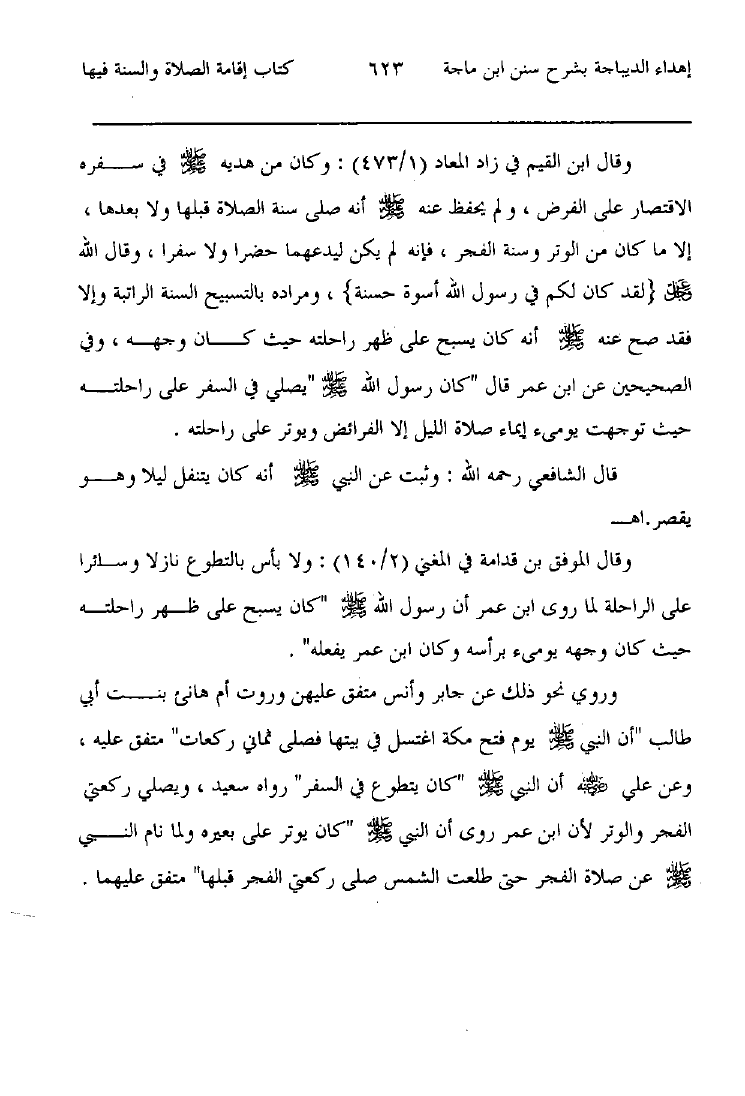 إهداء الديباجة بشرح سنن ابن ماجة ٦٢٣ كتاب إقامة الصلاة والسنة فيها
وقال ابن القيم في زاد المعاد (٤٧٣/١) : وكان من هديه ﷺ في سفره
الاقتصار على الفرض ، ولم يحفظ عنه ﷺ أنه صلى سنة الصلاة قبلها ولا بعدها ،
إلا ما كان من الوتر وسنة الفجر ، فإنه لم يكن ليدعهما حضرا ولا سفرا ، وقال الله
ﷻ {لقد كان لكم في رسول الله أسوة حسنة} ، ومراده بالتسبيح السنة الراتبة وإلا
فقد صح عنه ﷺ أنه كان يسبح على ظهر راحلته حيث كان وجهه ، وفي
الصحيحين عن ابن عمر قال "كان رسول الله ﷺ "يصلي في السفر على راحلته
حيث توجهت يومىء إيماء صلاة الليل إلا الفرائض ويوتر على راحلته .
قال الشافعي رحمه الله : وثبت عن النبي ﷺ أنه كان يتنفل ليلا وهو
يقصر.اهـ
وقال الموفق بن قدامة في المغني (١٤٠/٢) : ولا بأس بالتطوع نازلا وسائرا
على الراحلة لما روى ابن عمر أن رسول الله ﷺ "كان يسبح على ظهر راحلته
حيث كان وجهه يومىء برأسه وكان ابن عمر يفعله" .
وروي نحو ذلك عن جابر وأنس متفق عليهن وروت أم هانئ بنت أبي
طالب "أن النبي ﷺ يوم فتح مكة اغتسل في بيتها فصلى ثماني ركعات" متفق عليه ،
وعن علي رضي الله عنه أن النبي ﷺ "كان يتطوع في السفر" رواه سعيد ، ويصلي ركعتي
الفجر والوتر لأن ابن عمر روى أن النبي ﷺ "كان يوتر على بعيره ولما نام النبي
ﷺ عن صلاة الفجر حتى طلعت الشمس صلى ركعتي الفجر قبلها" متفق عليهما .